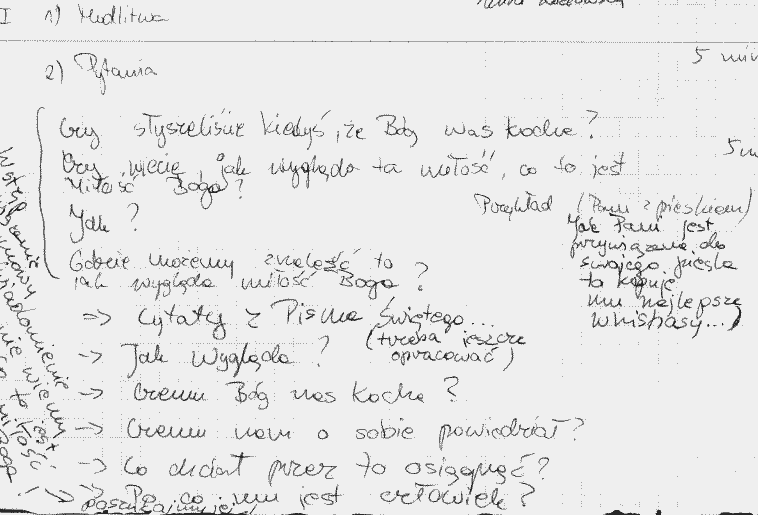 I 1) Modlitwa
2) Pytania
5 min
Czy słyszeliście kiedyś, że Bóg was kocha?
5 m
Czy wiecie, jak wygląda ta miłość, co to jest
Miłość Boga?
Jak?
Przykład (Pani z pieskiem)
Jak Pani jest
przywiązana do
swojego pieska
to kupuje
mu najlepsze
whiskasy...)
Gdzie możemy znaleźć to
jak wygląda miłość Boga?
=> Cytaty z Pisma Świętego...
(trzeba jeszcze
opracować)
-> Jak wygląda?
-> Czemu Bóg nas kocha?
-> Czemu nam o sobie powiedział?
-> Co chciał przez to osiągnąć?
-> Po co mu jest człowiek?
Wstęp
nie wiemy
co to jest
miłość
Boga!